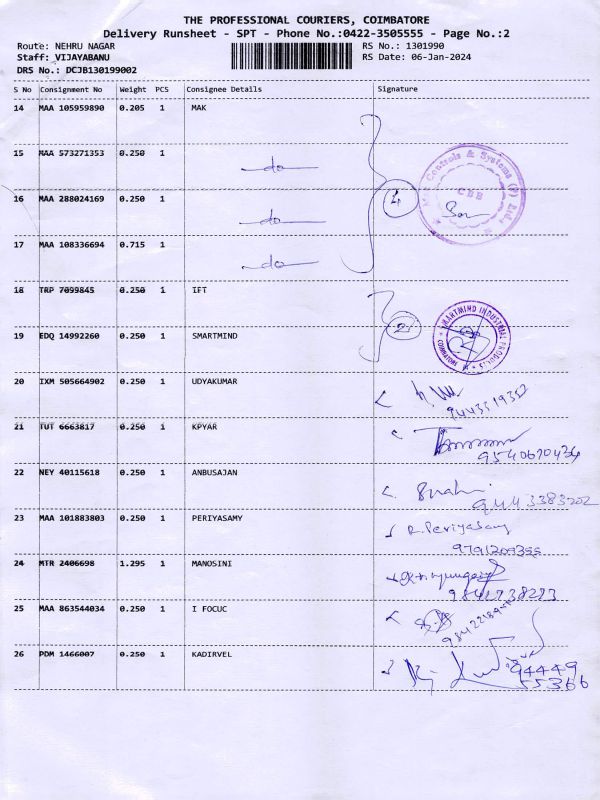 THE PROFESSIONAL COURIERS, COIMBATORE
Delivery Runsheet - SPT - Phone No.:0422-3505555 - Page No.:2
Route: NEHRU NAGAR RS No.: 1301990
Staff: VIJAYABANU RS Date: 06-Jan-2024
DRS No.: DCJB130199002
S No Consignment No Weight PCS Consignee Details Signature
14 MAA 105959890 0.205 1 MAK
15 MAA 573271353 0.250 1 do
16 MAA 288024169 0.250 1 do 4
17 MAA 108336694 0.715 1 do
Controls & Systems (P) Ltd.
CBE
18 TRP 7099845 0.250 1 IFT
19 EDQ 14992260 0.250 1 SMARTMIND 2
SMARTMIND INDUSTRIAL PRODUCTS
COIMBATORE
20 IXM 505664902 0.250 1 UDYAKUMAR
21 TUT 6663817 0.250 1 KPYAR
9540670434
22 NEY 40115618 0.250 1 ANBUSAJAN
9443383202
23 MAA 101883803 0.250 1 PERIYASAMY R. Periyasamy
24 MTR 2406698 1.295 1 MANOSINI
25 MAA 863544034 0.250 1 I FOCUC
26 PDM 1466007 0.250 1 KADIRVEL
94449
55366